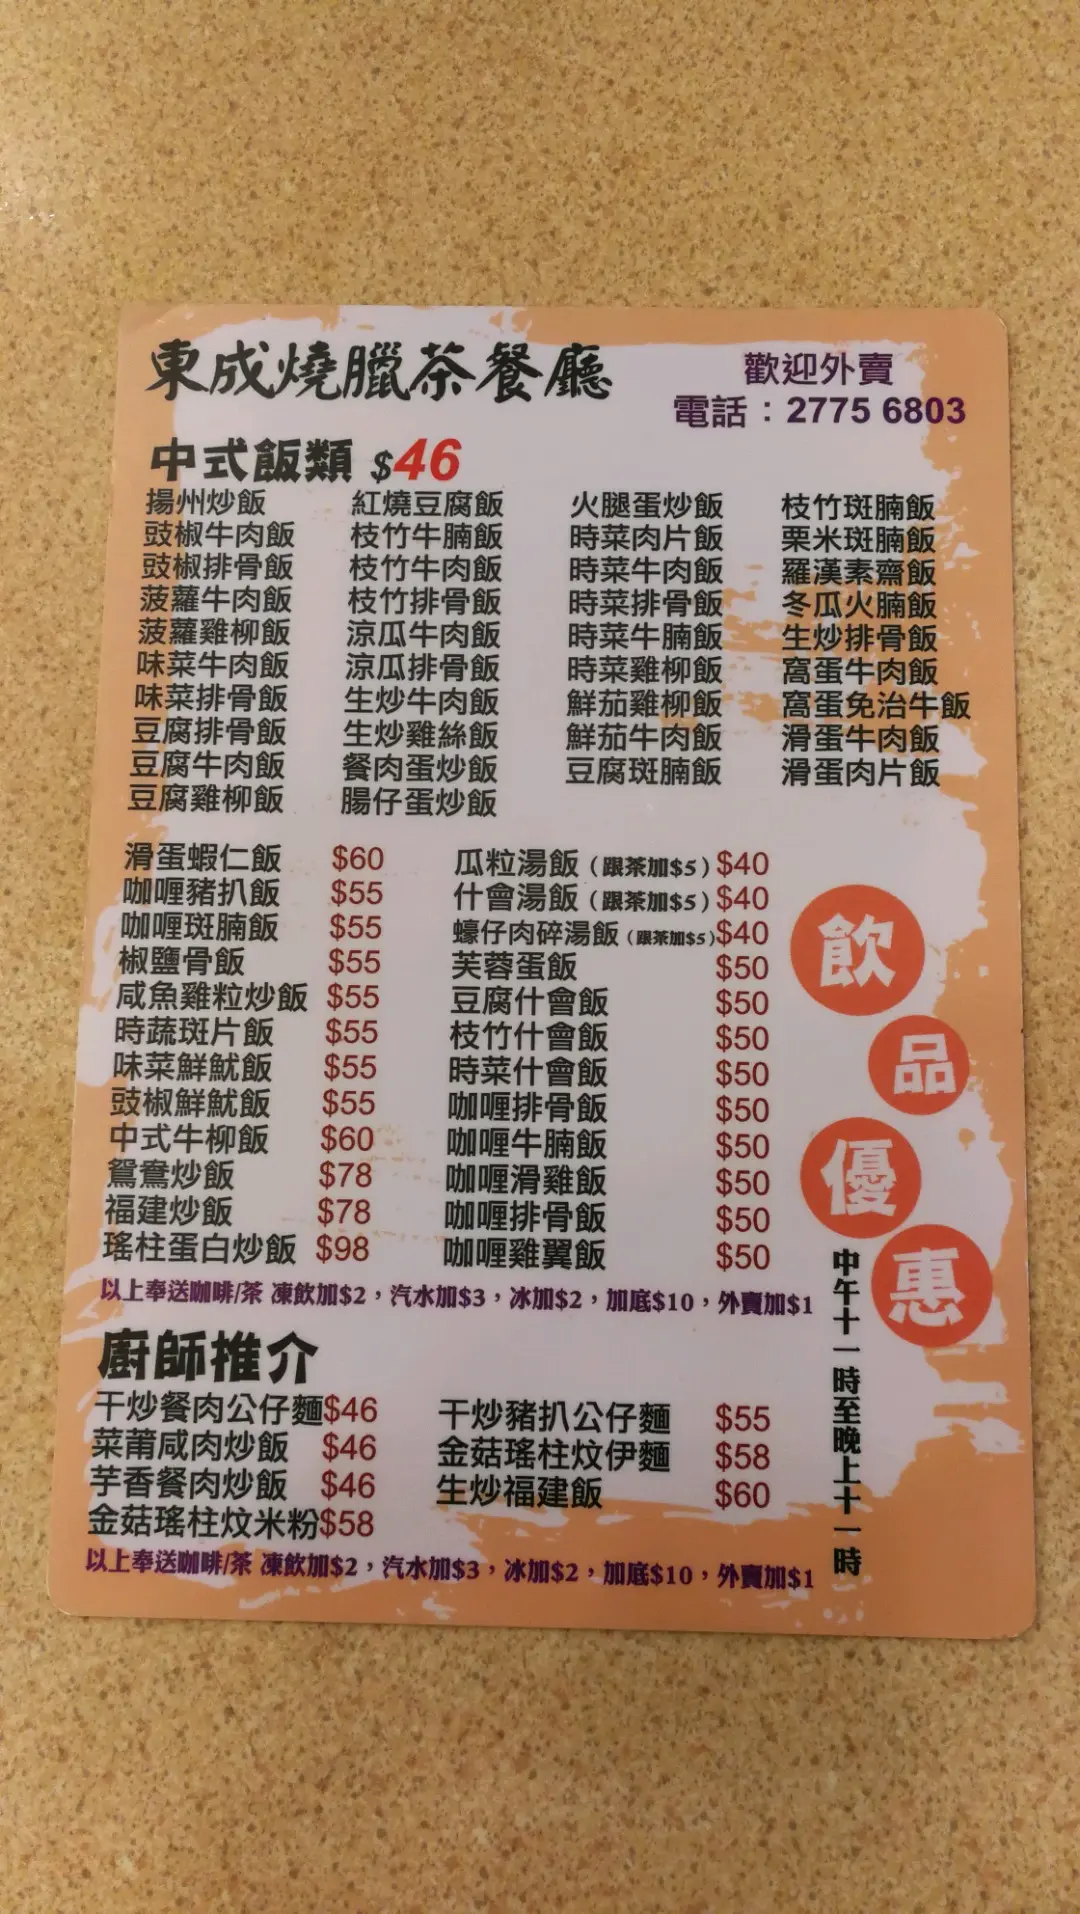 東成燒臘茶餐廳
歡迎外賣
電話：2775 6803
中式飯類 $46
揚州炒飯
豉椒牛肉飯
豉椒排骨飯
菠蘿牛肉飯
菠蘿雞柳飯
味菜牛肉飯
味菜排骨飯
豆腐排骨飯
豆腐牛肉飯
豆腐雞柳飯
紅燒豆腐飯
枝竹牛腩飯
枝竹牛肉飯
枝竹排骨飯
涼瓜牛肉飯
涼瓜排骨飯
生炒牛肉飯
生炒雞絲飯
餐肉蛋炒飯
腸仔蛋炒飯
火腿蛋炒飯
時菜肉片飯
時菜牛肉飯
時菜排骨飯
時菜牛腩飯
時菜雞柳飯
鮮茄雞柳飯
鮮茄牛肉飯
豆腐斑腩飯
枝竹斑腩飯
栗米斑腩飯
羅漢素齋飯
冬瓜火腩飯
生炒排骨飯
窩蛋牛肉飯
窩蛋免治牛飯
滑蛋牛肉飯
滑蛋肉片飯
滑蛋蝦仁飯 $60
咖喱豬扒飯 $55
咖喱斑腩飯 $55
椒鹽骨飯 $55
咸魚雞粒炒飯 $55
時蔬斑片飯 $55
味菜鮮魷飯 $55
豉椒鮮魷飯 $55
中式牛柳飯 $60
鴛鴦炒飯 $78
福建炒飯 $78
瑤柱蛋白炒飯 $98
瓜粒湯飯（跟茶加$5）$40
什會湯飯（跟茶加$5）$40
蠔仔肉碎湯飯（跟茶加$5）$40
芙蓉蛋飯 $50
豆腐什會飯 $50
枝竹什會飯 $50
時菜什會飯 $50
咖喱排骨飯 $50
咖喱牛腩飯 $50
咖喱滑雞飯 $50
咖喱排骨飯 $50
咖喱雞翼飯 $50
以上奉送咖啡/茶 凍飲加$2，汽水加$3，冰加$2，加底$10，外賣加$1
飲品優惠
中午十一時至晚上十一時
廚師推介
干炒餐肉公仔麵$46
菜莆咸肉炒飯 $46
芋香餐肉炒飯 $46
金菇瑤柱炆米粉$58
干炒豬扒公仔麵 $55
金菇瑤柱炆伊麵 $58
生炒福建飯 $60
以上奉送咖啡/茶 凍飲加$2，汽水加$3，冰加$2，加底$10，外賣加$1